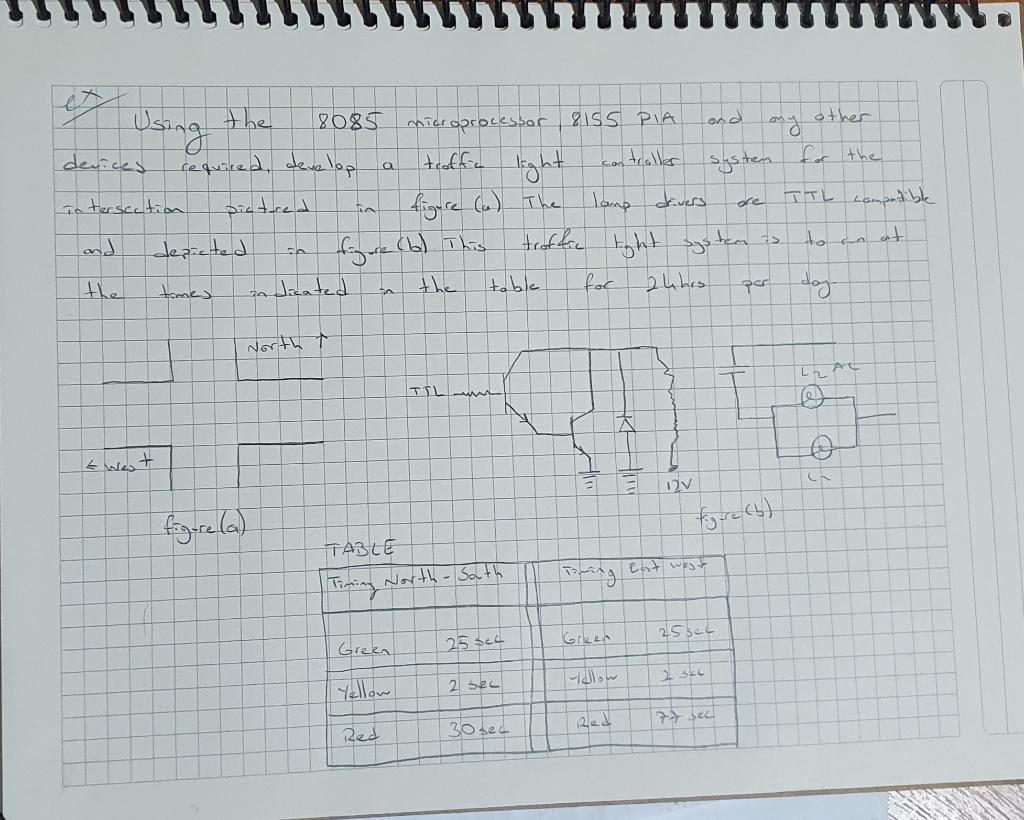 ex
Using the 8085 microprocessor, 8155 PIA and any other
devices required, develop a traffic light controller system for the
intersection pictured in figure (a) The lamp drivers are TTL compatible
and depicted in figure (b) This traffic light system is to run at
the times indicated in the table for 24hrs per day.
North ↑
TTL
L2 AC
← West
12V
L1
figure (a)
figure (b)
TABLE
Timing North - South Timing East west
Green 25 sec Green 25 sec
Yellow 2 sec Yellow 2 sec
Red 30 sec Red 77 sec